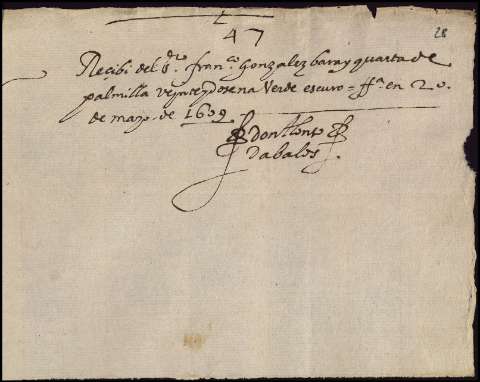 28
47
Recibi del s.r fran.co gonzalez bara y quarta de
palmilla veinte y dosena Verde escuro = ff.a en 20.
de mayo. de 1609.
don Alonso
dabalos.